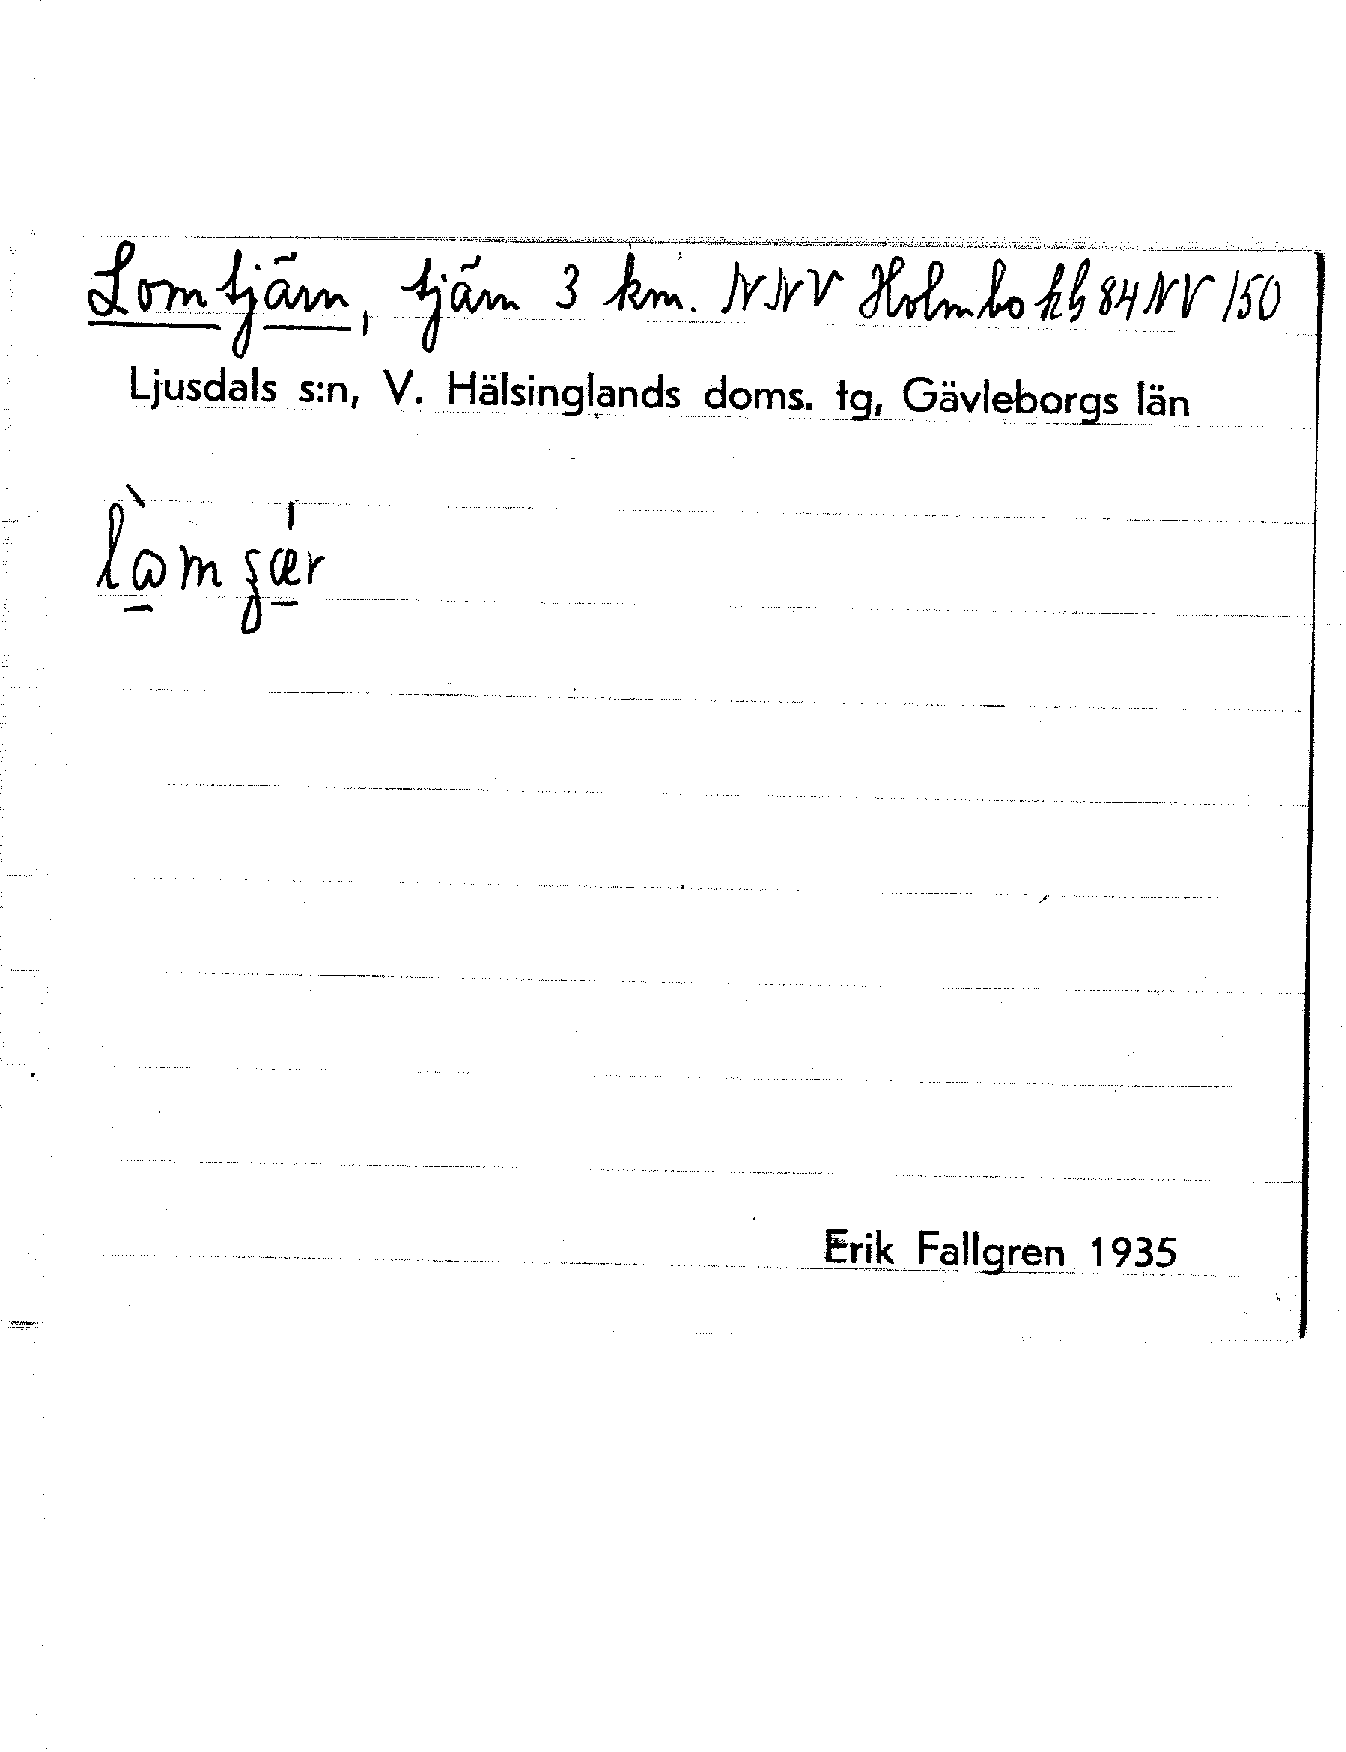 Lomtjärn, tjärn 3 km. NNV Holmbo kb 84 NV 150
Ljusdals s:n, V. Hälsinglands doms. tg, Gävleborgs län
Erik Fallgren 1935